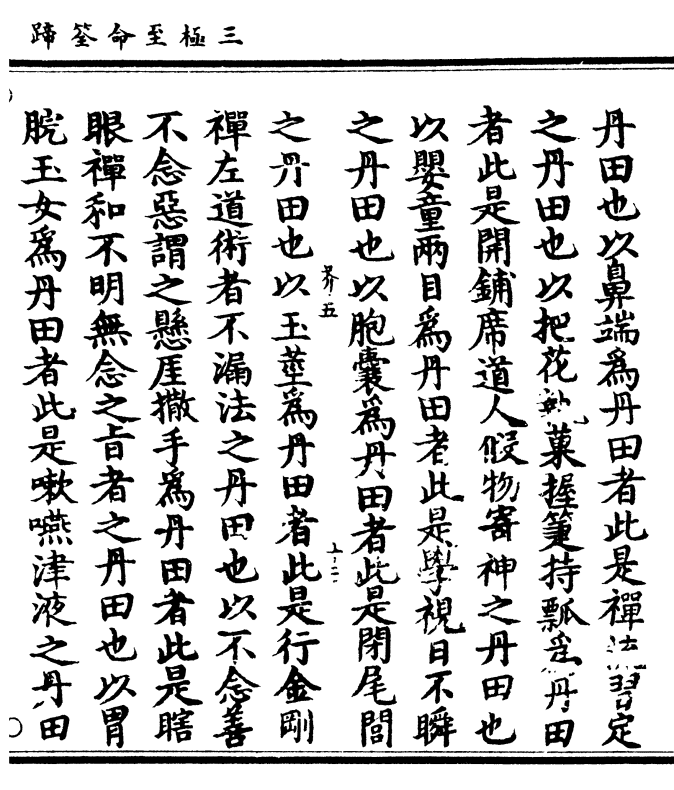 三極至命筌蹄
丹田也以鼻端爲丹田者此是禪流習定
之丹田也以把花執菓握箑持瓢爲丹田
者此是開鋪席道人假物寄神之丹田也
以嬰童兩目爲丹田者此是學視日不瞬
之丹田也以胞囊爲丹田者此是閉尾閭
芥五
之丹田也以玉莖爲丹田者此是行金剛
禪左道術者不漏法之丹田也以不念善
不念惡謂之懸厓撒手爲丹田者此是瞎
眼禪和不明無念之旨者之丹田也以胃
脘玉女爲丹田者此是嗽嚥津液之丹田